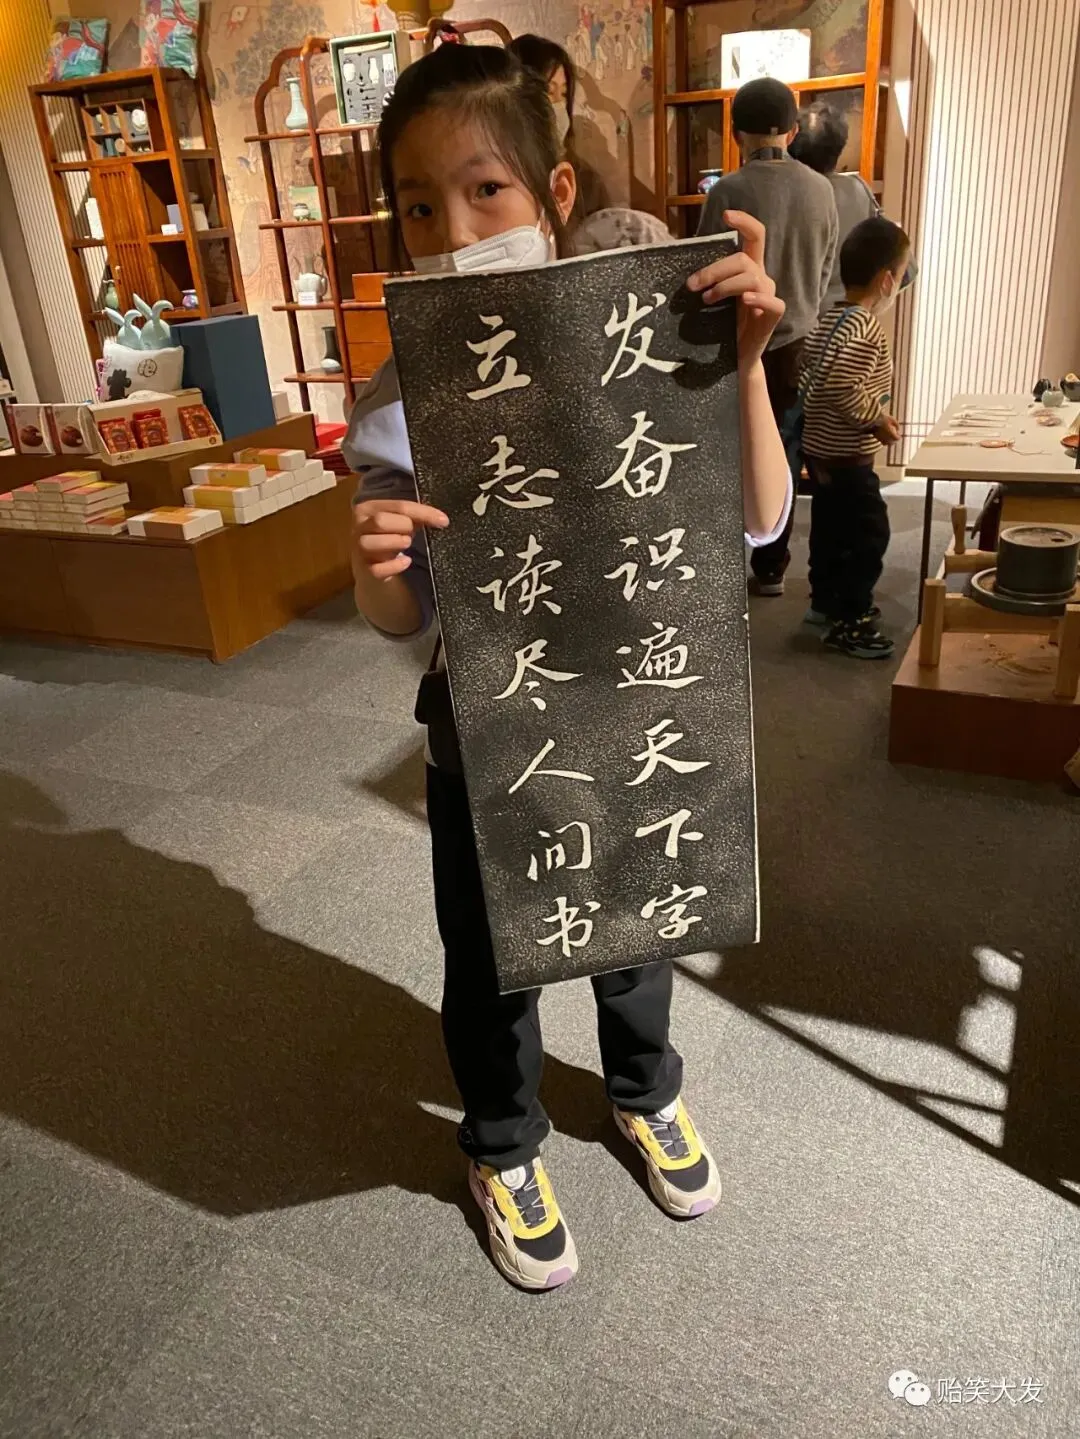 发奋识遍天下字
立志读尽人间书
贻笑大发